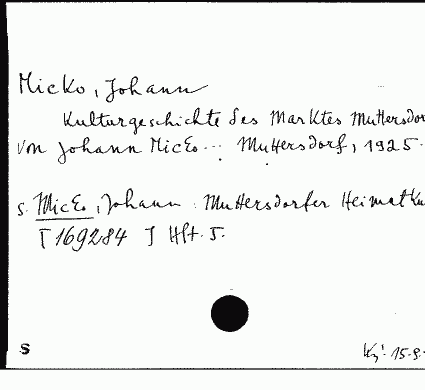 Micko, Johann
Kulturgeschichte des Marktes Muttersdor
von Johann Micko... Muttersdorf, 1925.
s. Micko, Johann: Muttersdorfer Heimatku
[169284 ] Hft. 5.
S
15.9.